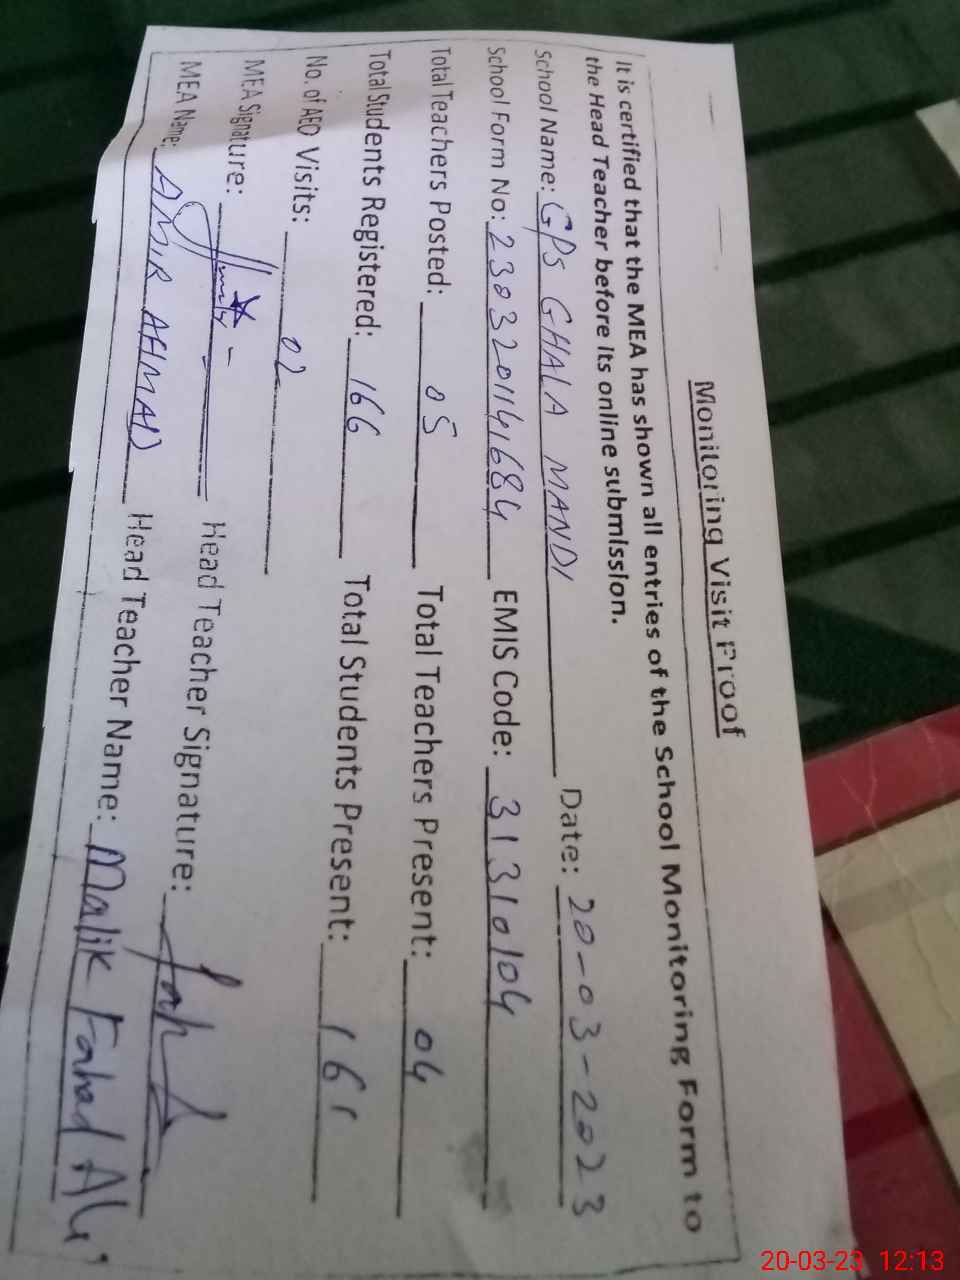 Monitoring Visit Proof
It is certified that the MEA has shown all entries of the School Monitoring Form to
the Head Teacher before its online submission.
School Name: GPS GHALA MANDI Date: 20-03-2023
School Form No: 2303201141684 EMIS Code: 31310104
Total Teachers Posted: 05 Total Teachers Present: 04
Total Students Registered: 166 Total Students Present: 161
No. of AEO Visits: 02
MEA Signature: Head Teacher Signature:
MEA Name: AMIR AHMAD Head Teacher Name: Malik Fahad Ali
20-03-23 12:13